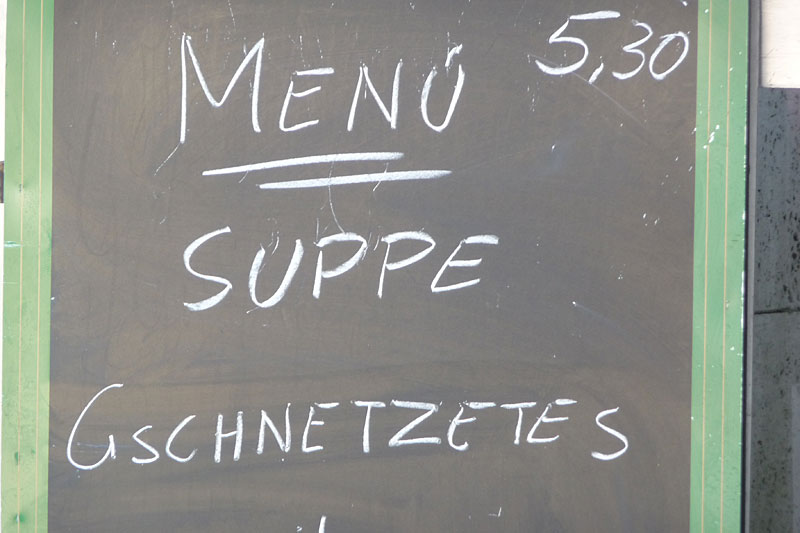 MENÜ 5,30
SUPPE
GSCHNETZETES